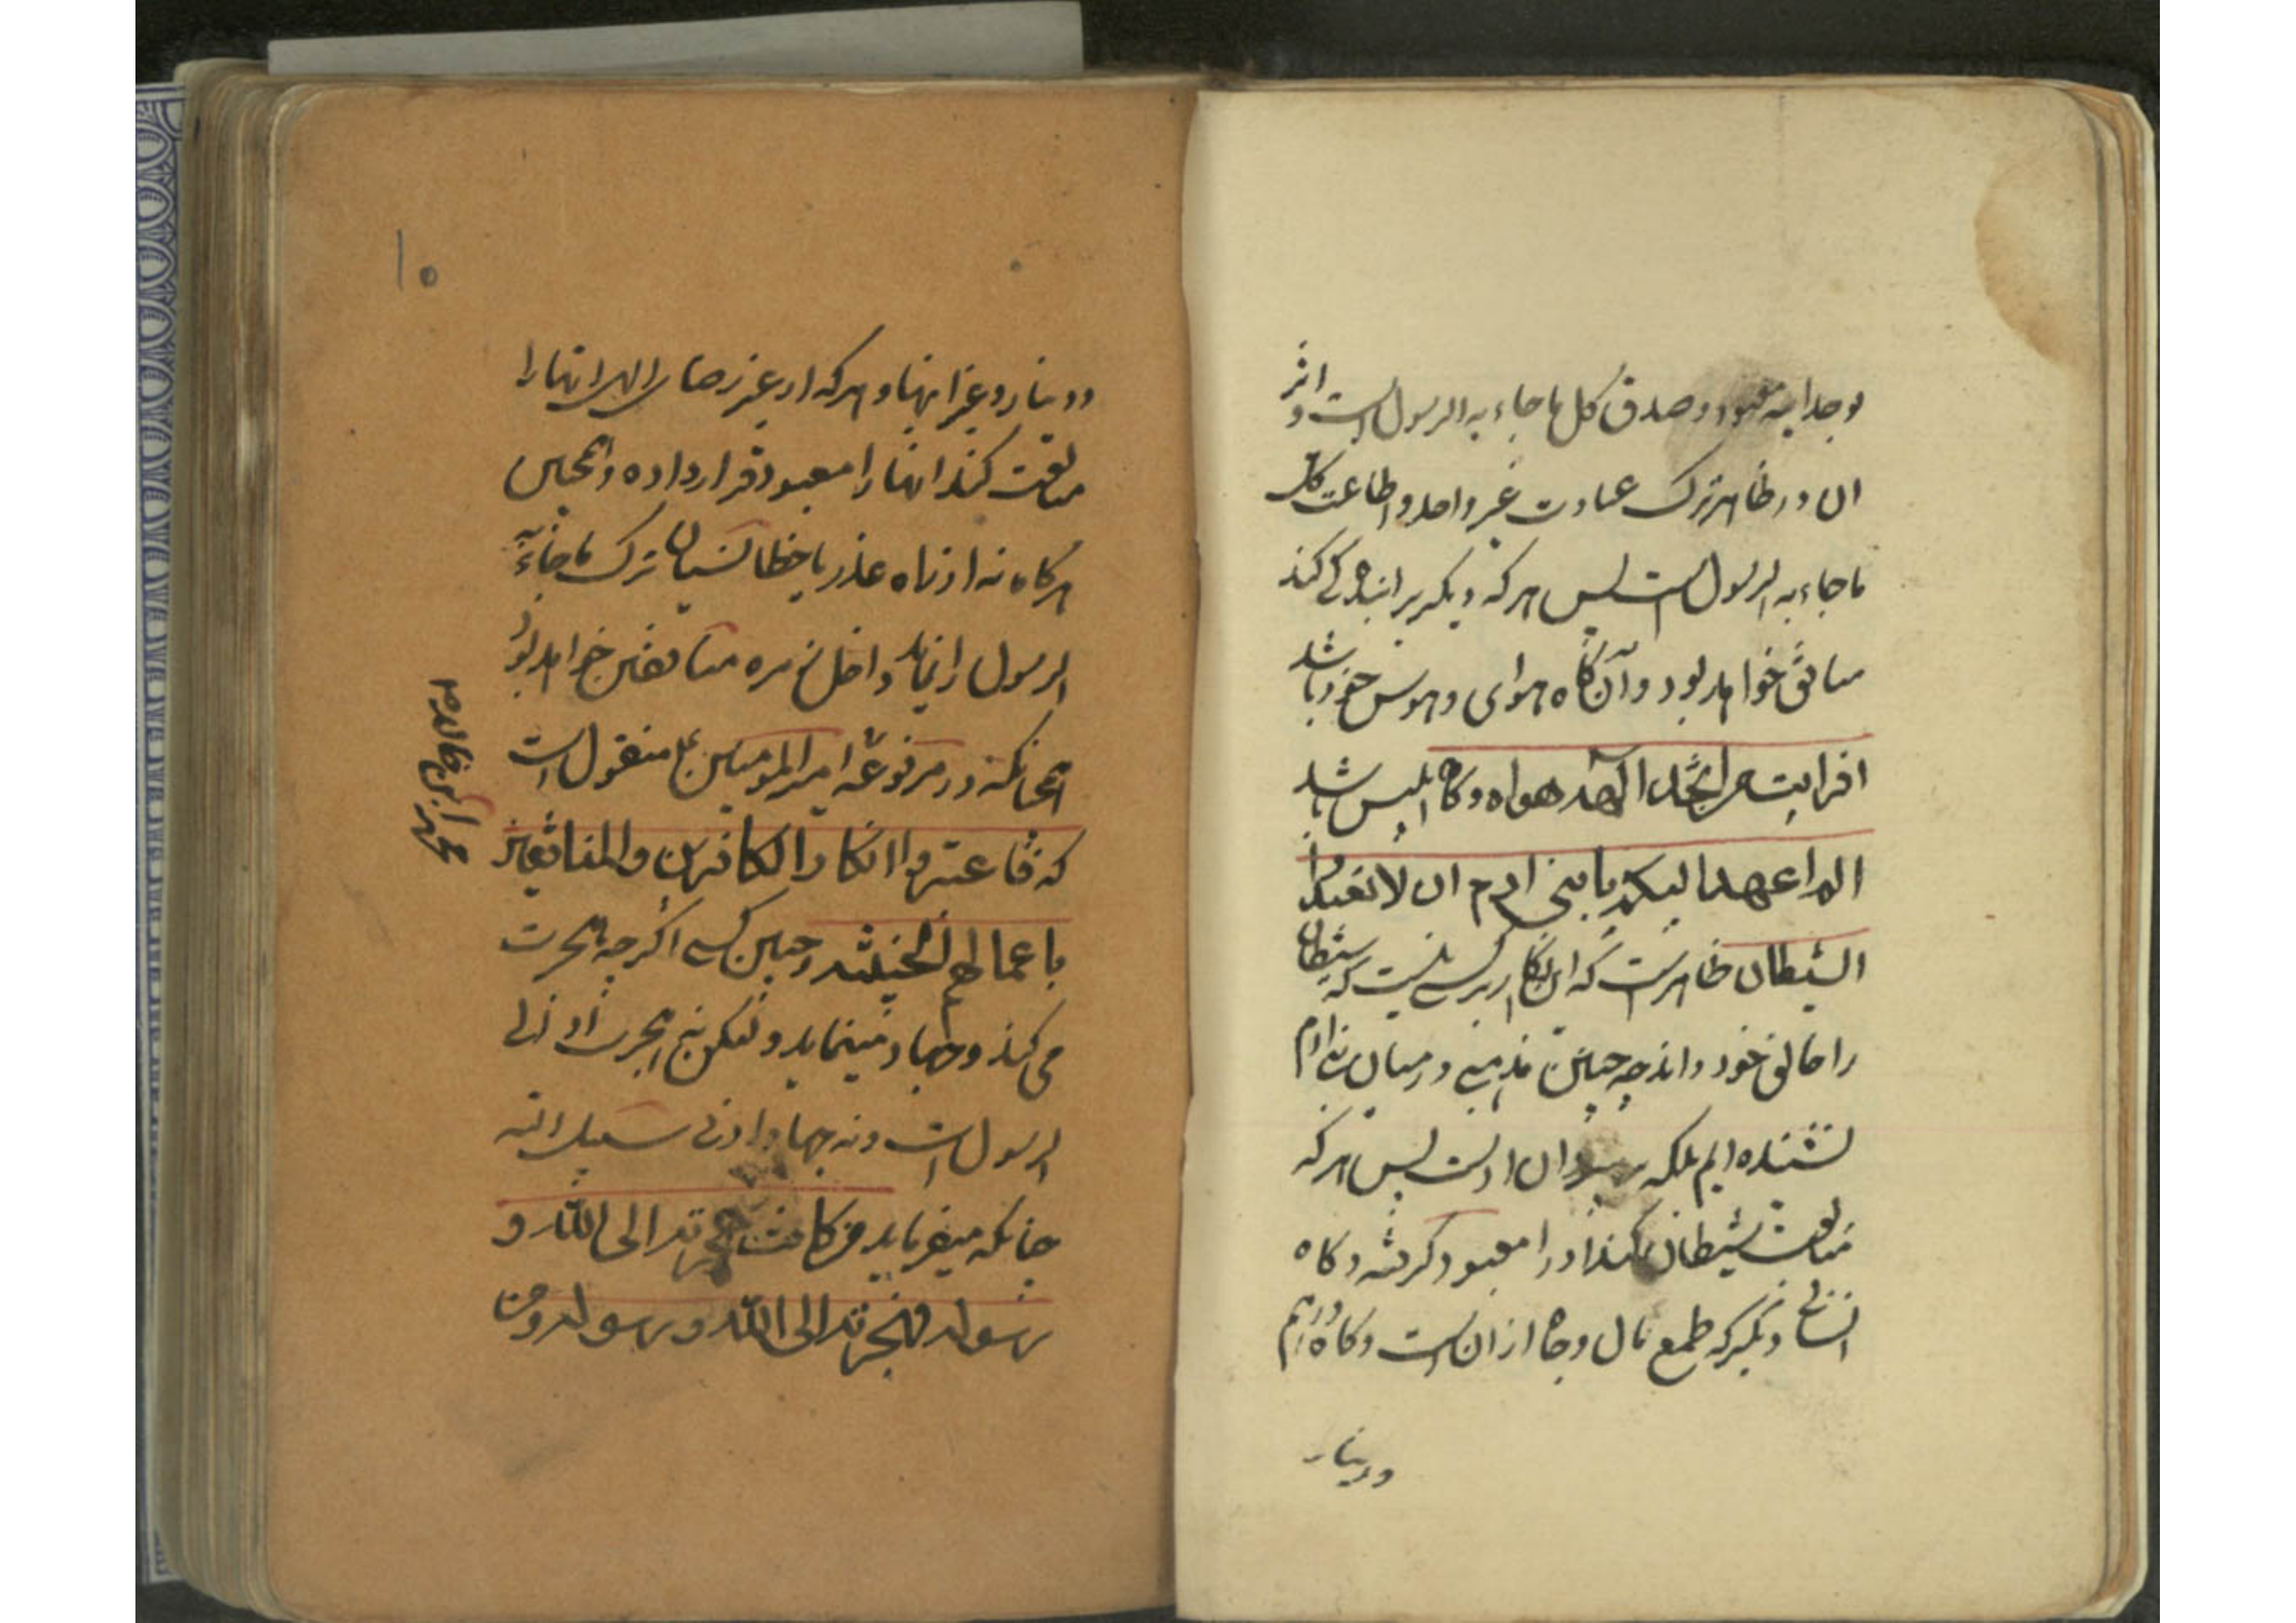 بوحدانیه معبود و صدق کل ما جاء به الرسول است و اثر
ان در ظاهر ترک عبادت غیر واحد و اطاعت کل
ما جاء به الرسول است پس هر که دیگر پرا بندگی کند
منافق خواهد بود و آن گاه هوای و هوس خود باشد
افرایت من اتخذ الهه هواه و کاه ابلیس باشد
الم اعهد الیکم یا بنی ادم ان لا تعبدوا
الشیطان ظاهر است که این انکار بر کسی نیست که شیطان
را خالق خود داند چه چنین مذهبی در میان بنی ادم
نشنیده ایم بلکه بر پیروان اوست پس هر که
متابعت شیطان کند او را معبود گرفته و کاه
انسانی دیگر که طمع مال و جاه از ان است و کاه درهم
و دینار
۱۰
و دینار و غیر اینها و هر که از غیر رضای الهی اینها را
متابعت کند اینها را معبود قرار داده و همچنین
هر کاه نه از راه عذر یا خطا نسیان ترک ما جاء به
الرسول را نماید داخل زمره منافقین خواهد بود
همچنانکه در مرفوعه امیر المومنین ع منقول است
که فاعتبروا انکار الکافرین والمنافقین
باعمالهم الخبیثه و چنین کسی اگر چه هجرت
می کند و جهاد مینماید و لیکن نه هجرت او الی
الرسول است و نه جهاد او فی سبیل الله
چنانکه میفرماید من کانت هجرته الی الله و
رسوله فهجرته الی الله و رسوله و من